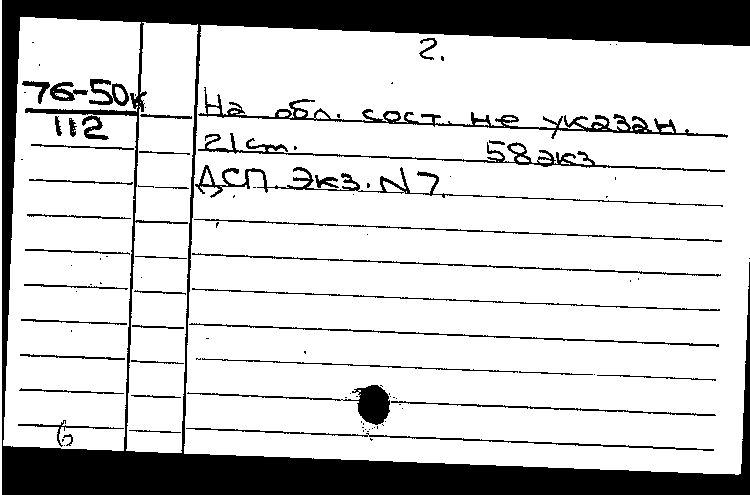 2.
76-50к
112
На обл. сост. не указан.
21cm. 58экз
ДСП. Экз. N7.
6